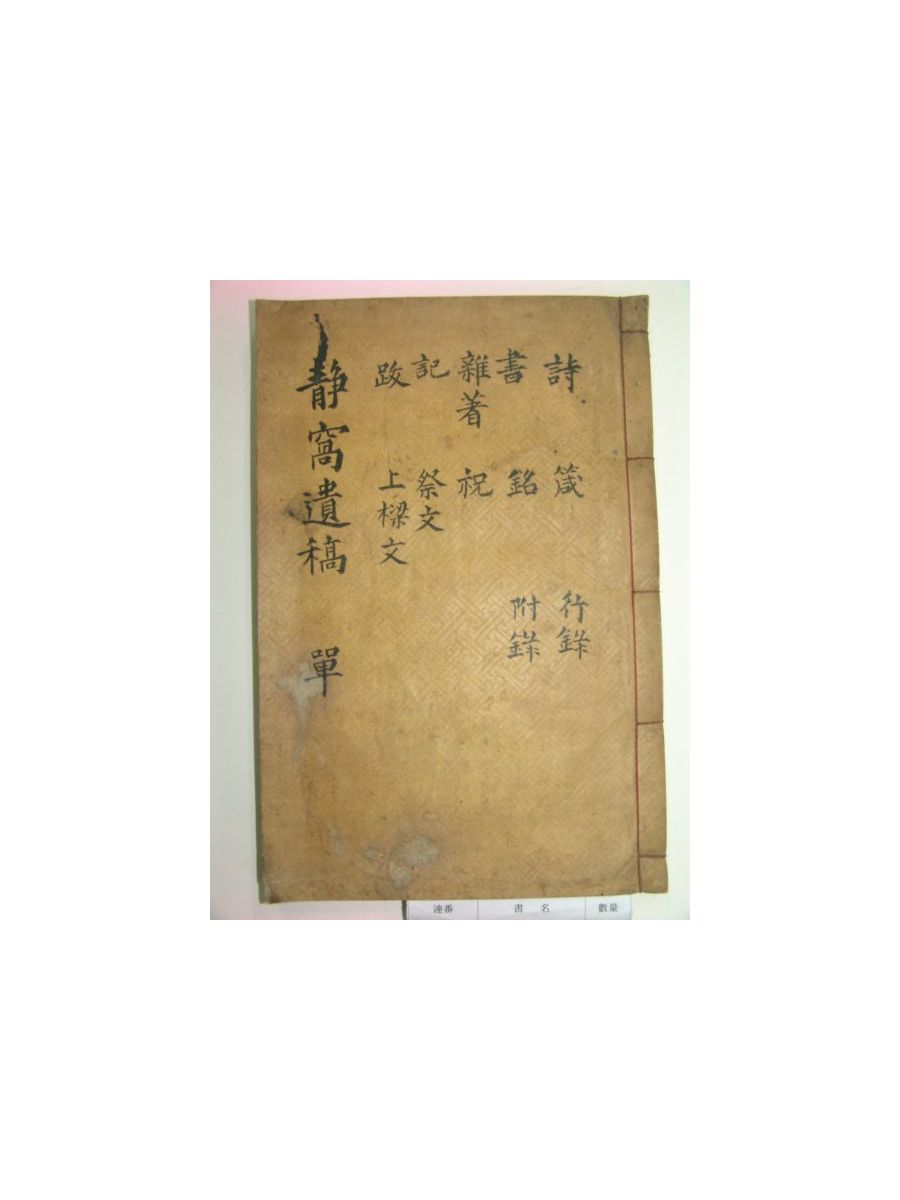 詩
書
雜著
記
跋
箴
銘
祝
祭文
上樑文
行錄
附錄
靜窩遺稿 單
連番 書名 數量